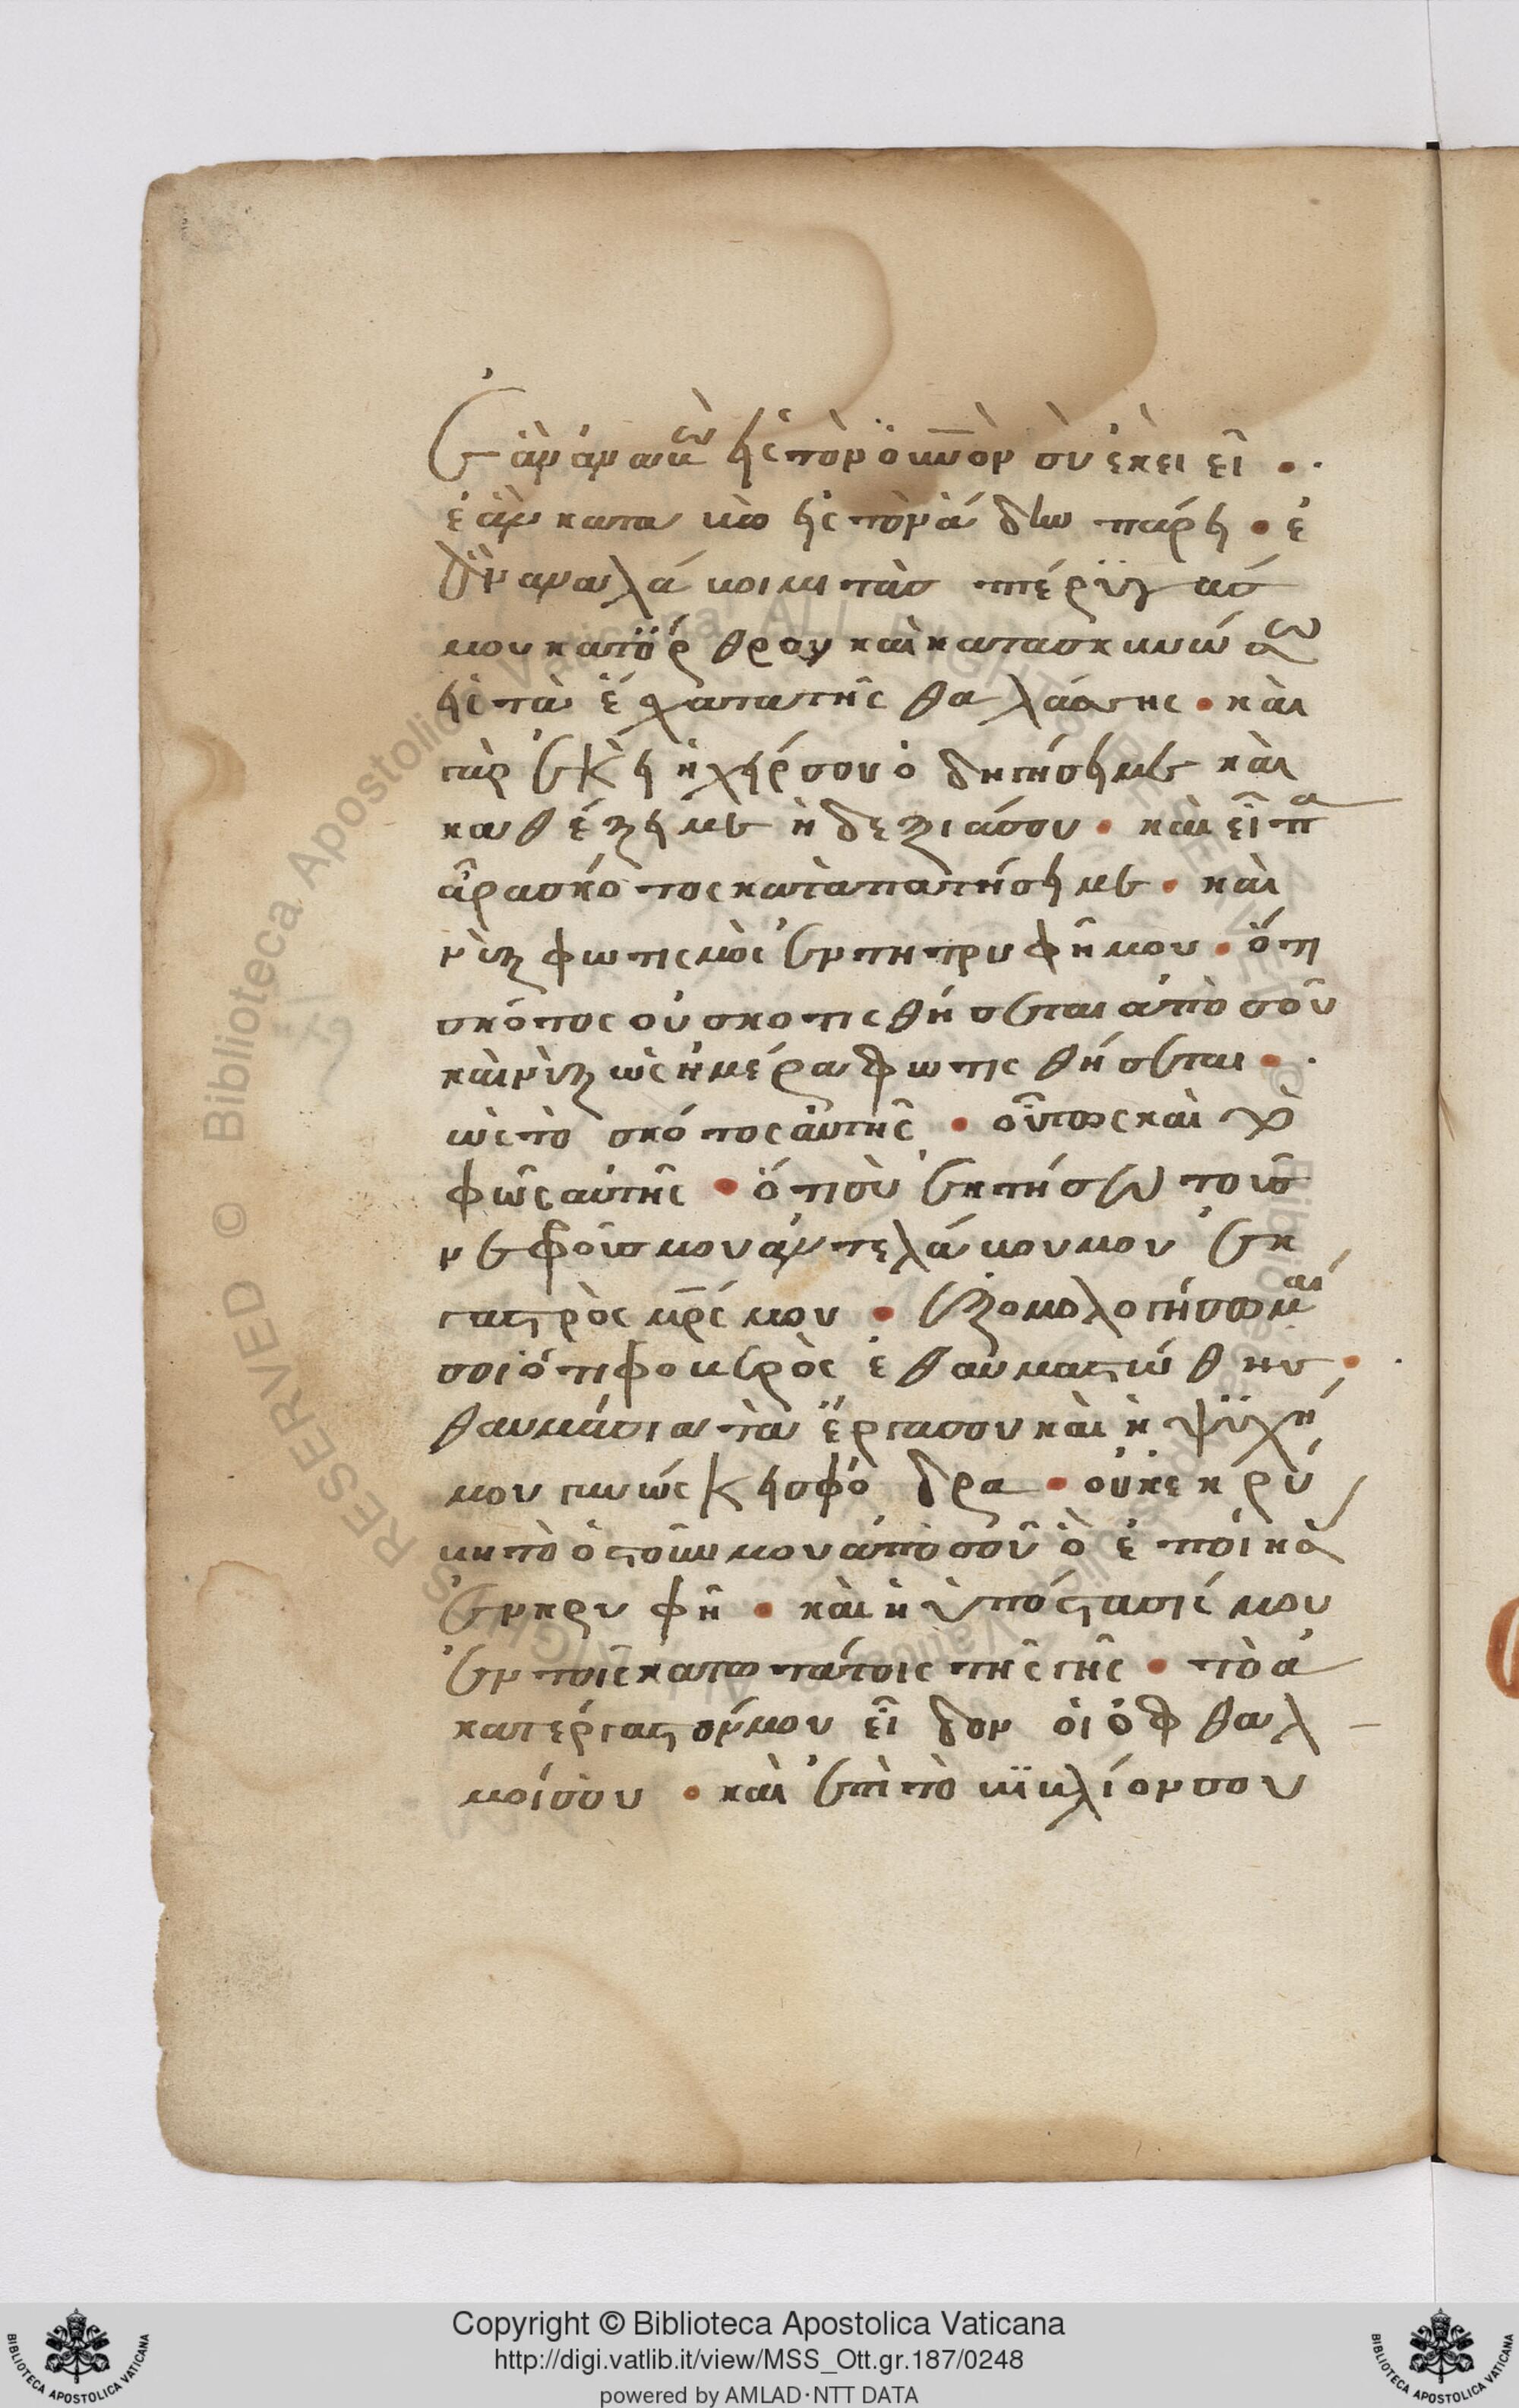 ἐὰν ἀναβῶ εἰς τὸν οὐνὸν σὺ ἐκεῖ εῖ ·
ἐὰν καταβὼ εἰς τὸν ἅδην πάρει · ἐ
ὰν αναλάβοιμι τὰσ πτέρϋγασ
μου κατ' ὄρθρον καὶ κατασκηνώσω
εἰς τὰ ἔσχατα τῆς θαλάσσης · καὶ
γὰρ ἐκεῖ ἡ χείρ σου ὁδηγήσει με καὶ
καθέξει με ἡ δεξιά σου · καὶ εἶπα
ἆρα σκότος καταπατήσει με · καὶ
νὺξ φωτισμὸς ἐν τῆ τρυφῆ μου · ὅτι
σκότος οὐ σκοτισθήσεται ἀπὸ σοῦ
καὶ νὺξ ὡς ἡμέρα φωτισθήσεται ·
ὡς τὸ σκότος ἀυτῆς · οὕτως καὶ τὸ
φῶς αὐτῆς · ὅτι σὺ ἐκτήσω τοὺσ
νεφρούσ μου ἀντελάβου μου ἐκ
γαστρὸς μρς μου · ἐξομολογήσομαί
σοι ὅτι φοβερὸς ἐθαυμαστώθησ ·
θαυμάσια τὰ ἔργα σου καὶ ἡ ψϋχή
μου γινώσκει σφόδρα · οὐκ εκρύ
βη τὸ ὀστοῦν μου ἀπὸ σοῦ ὃ ἐποίησασ
ἐν κρυφῆ · καὶ ἡ ὑπόστασίς μου
ἐν τοῖς κατωτάτοις τῆς γῆς · τὸ ἀ
κατέργαστόν μου εἶδον οἱ ὀφθαλ
μοί σου · καὶ ἐπὶ τὸ βϊβλίον σου
Copyright © Biblioteca Apostolica Vaticana
http://digi.vatlib.it/view/MSS_Ott.gr.187/0248
powered by AMLAD·NTT DATA